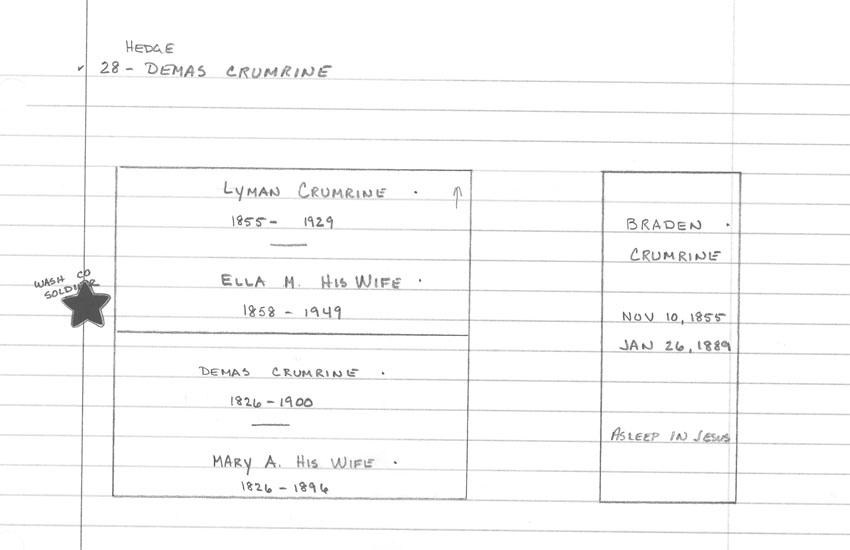 HEDGE
✓ 28 - DEMAS CRUMRINE
LYMAN CRUMRINE . ↑
1855 - 1929
ELLA M. HIS WIFE .
1858 - 1949
WASH CO
SOLDIER
DEMAS CRUMRINE .
1826 - 1900
MARY A. HIS WIFE .
1826 - 1896
BRADEN .
CRUMRINE
NOV 10, 1855
JAN 26, 1889
ASLEEP IN JESUS